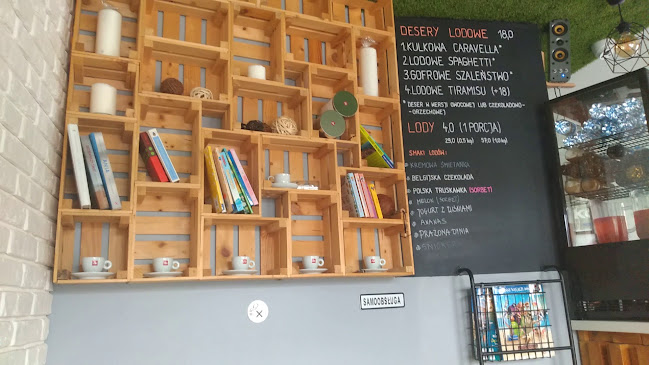 DESERY LODOWE 18,0
1.KULKOWA CARAVELLA*
2.LODOWE SPAGHETTI*
3.GOFROWE SZALEŃSTWO*
4.LODOWE TIRAMISU (+18)
*DESER W WERSJI OWOCOWEJ LUB CZEKOLADOWO-
-ORZECHOWEJ
LODY 4,0 (1 PORCJA)
SMAKI LODÓW:
KREMOWA ŚMIETANKA
BELGIJSKA CZEKOLADA
POLSKA TRUSKAWKA (SORBET)
MELON
JOGURT Z
ANANAS
PRAŻONA DYNIA
SAMOOBSŁUGA
illy
illy
illy
illy
illy